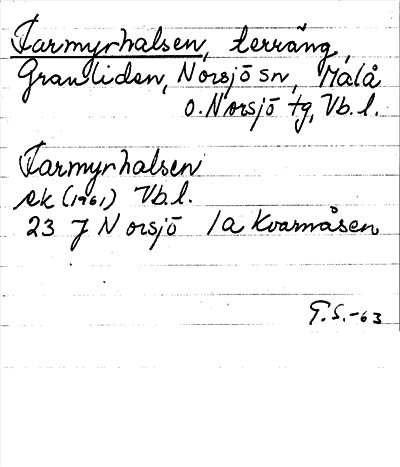 Farmyrhalsen, terräng,
Granliden, Norsjö sn, Malå
o. Norsjö tg, Vb. l.
Farmyrhalsen
ek (1961) Vb. l.
23 J Norsjö 1a Kvarnåsen
T.S.-63